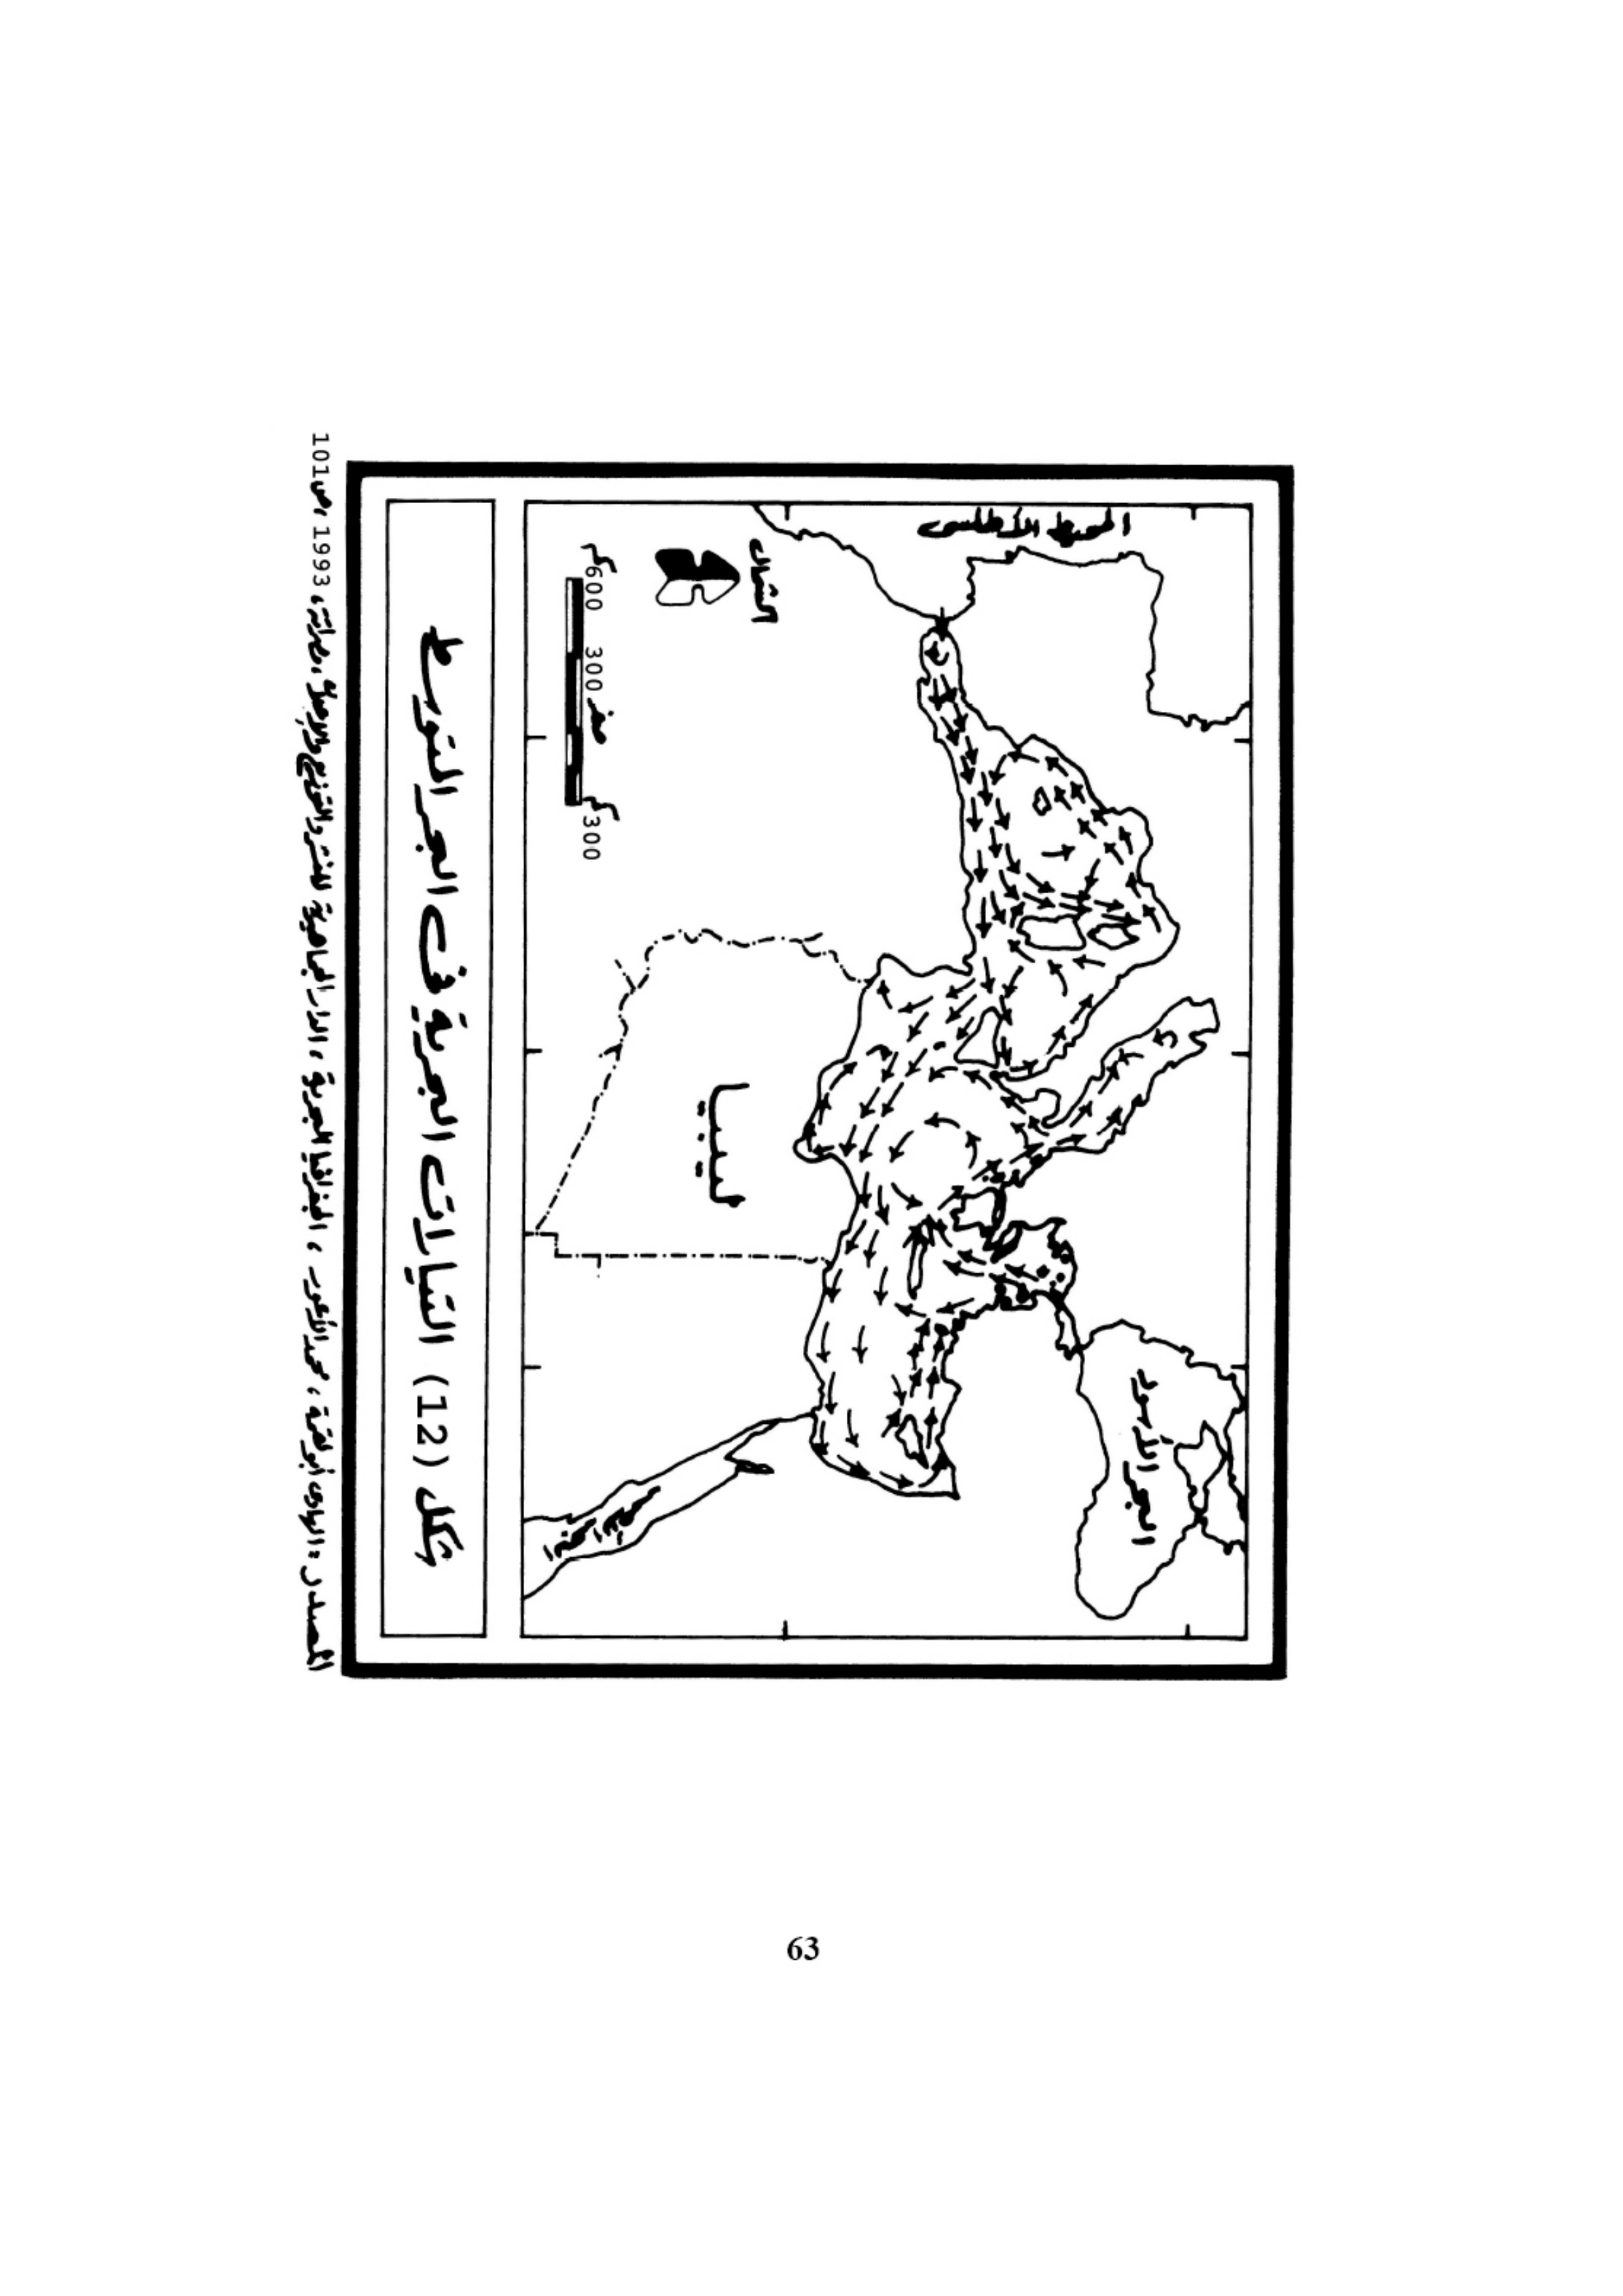 المحيط الأطلسي
البحر الأسود
الشمال
ليبيا
البحر الأحمر
كم600 300 صفر 300كم
شكل (12) التيارات البحرية في البحر المتوسط
المصدر: الهادي أبولقمة، محمد الأعور، الجغرافيا البحرية، الدار الجماهيرية للنشر والتوزيع والإعلان، مصراتة، 1993، ص101
63